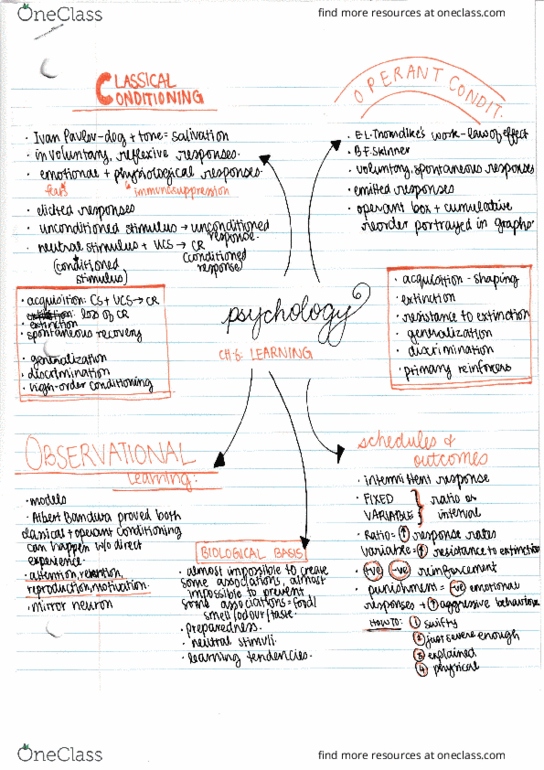 OneClass
find more resources at oneclass.com
CLASSICAL
CONDITIONING
OPERANT CONDIT.
• Ivan Pavlov-dog + tone = salivation
• involuntary, reflexive responses.
• emotional + physiological responses.
fear
* immunosuppression
• elicited responses
• unconditioned stimulus → unconditioned
response.
• neutral stimulus + UCS → CR
(conditioned
stimulus)
(conditioned
response)
• E.L. Thorndike's work - law of effect
• B.F. Skinner
• voluntary, spontaneous responses
• emitted responses
• operant box + cumulative
recorder portrayed in graphs
• acquisition: CS + UCS → CR
• extinction: loss of CR
• spontaneous recovery
• generalization
• discrimination
• high-order conditioning
psychology
CH 6: LEARNING
• acquisition - shaping
• extinction
• resistance to extinction
• generalization
• discrimination
• primary reinforcers
OBSERVATIONAL
Learning.
• models
• Albert Bandura proved both
classical + operant conditioning
can happen w/o direct
experience.
• attention, retention,
reproduction, motivation.
• mirror neuron
BIOLOGICAL BASIS
• almost impossible to create
some associations, almost
impossible to prevent
some associations = food/
smell/odour/taste.
• preparedness.
• neutral stimuli.
• learning tendencies.
schedules &
outcomes
• intermittent response
• FIXED
VARIABLE
} ratio or
interval
• Ratio = ↑ response rates
Variable = ↑ resistance to extinction
• +ve -ve reinforcement
• punishment = -ve emotional
responses + ↑ aggressive behaviour
HOW TO: 1 swifty
2 just severe enough
3 explained
4 physical
OneClass
find more resources at oneclass.com